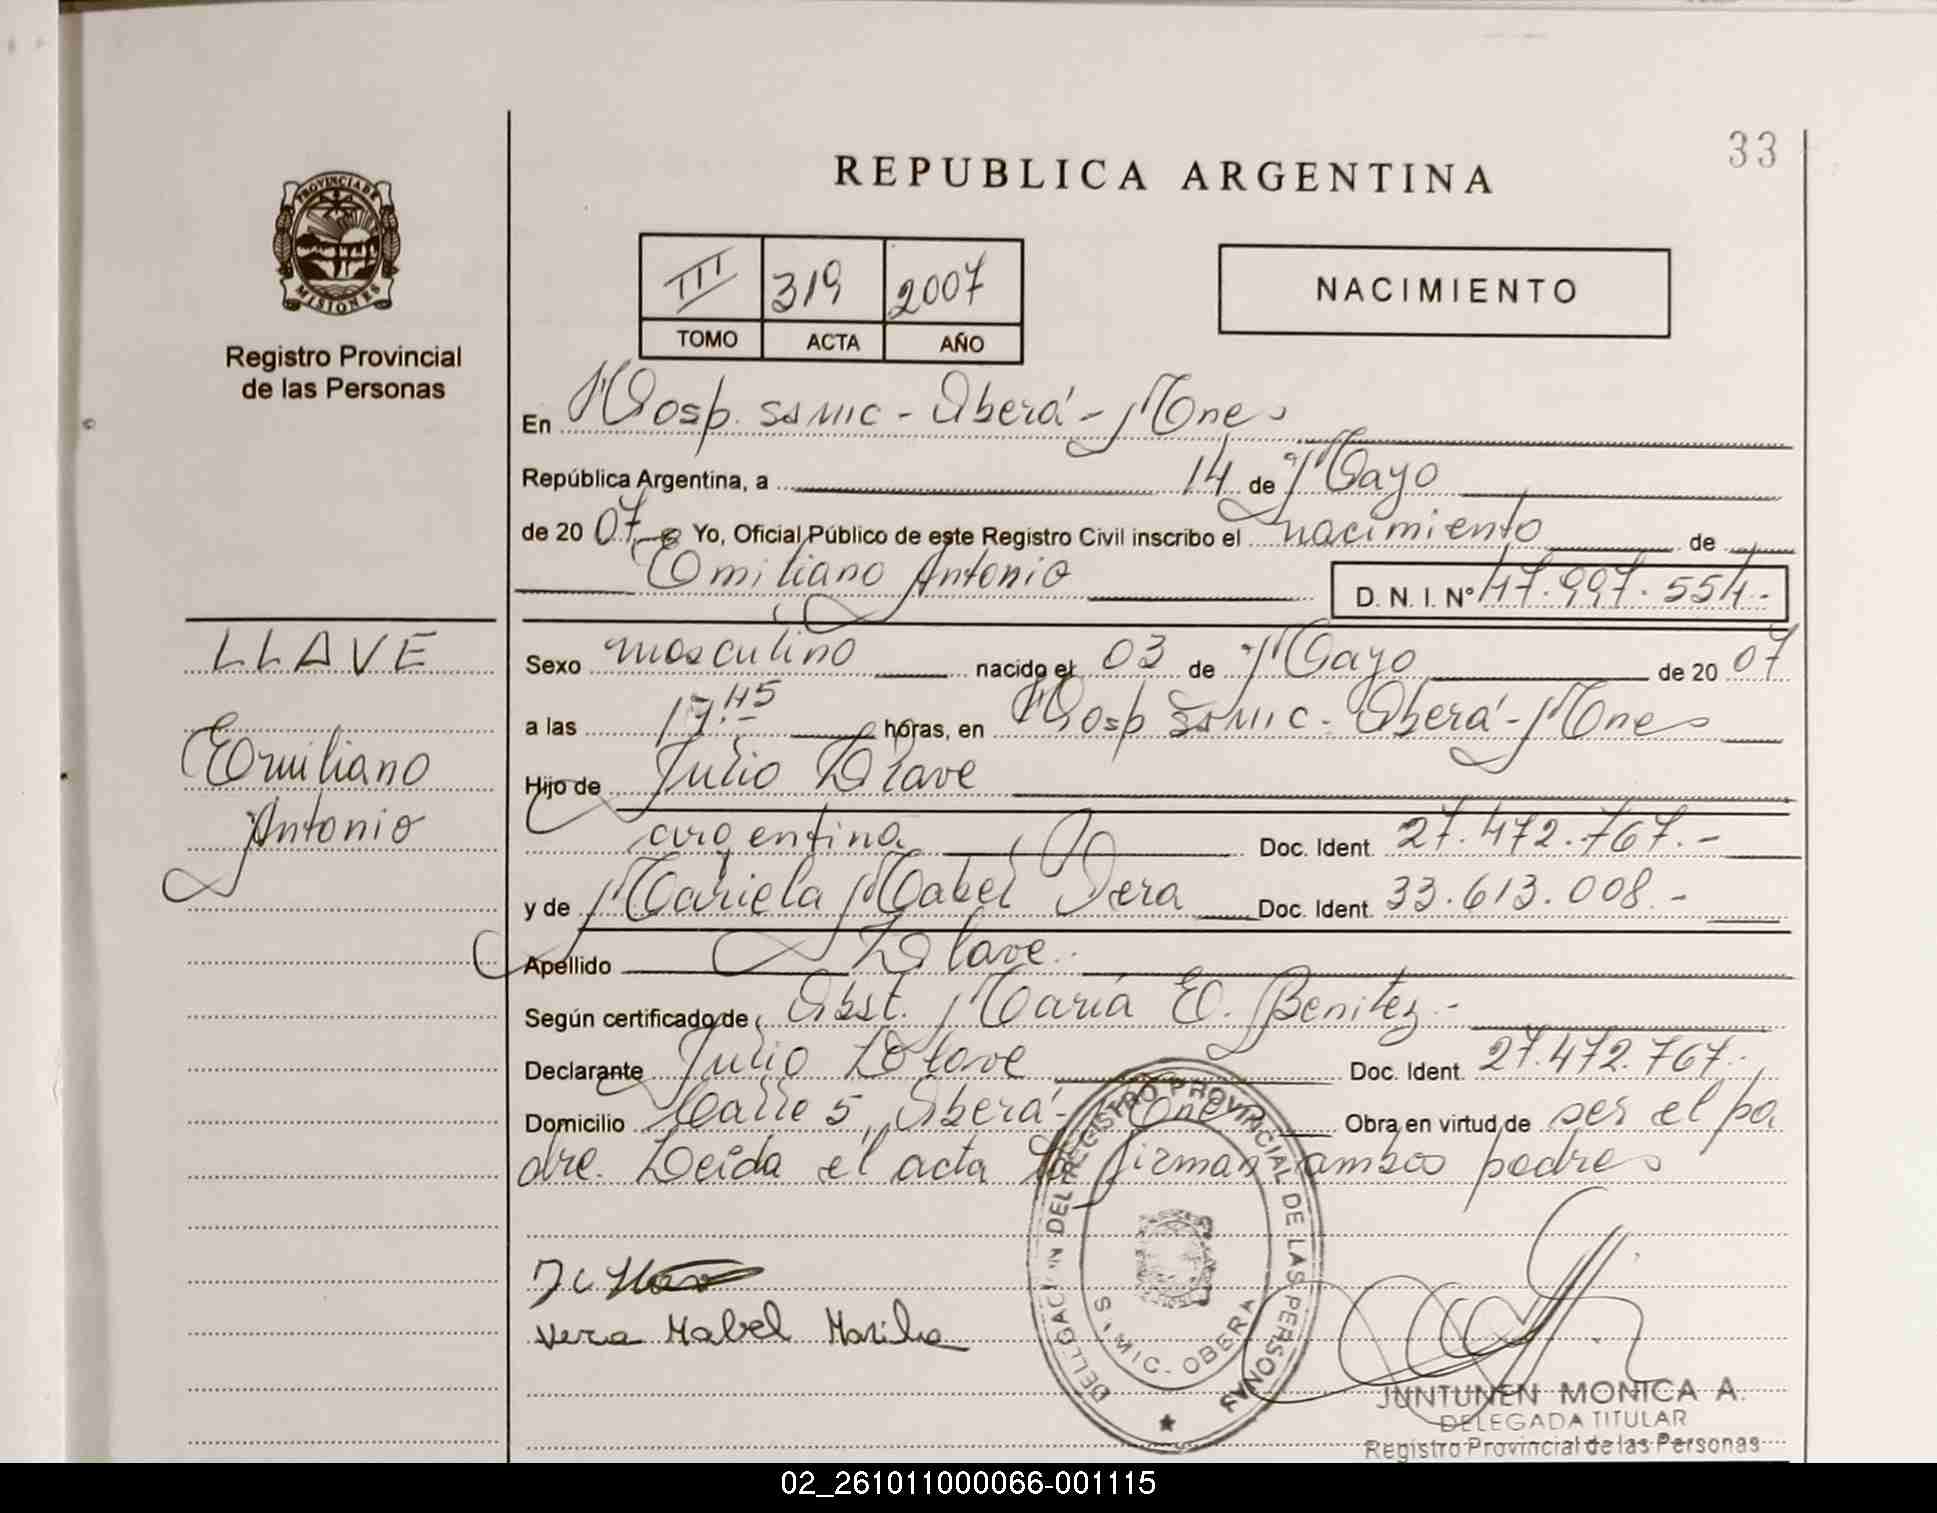 33
REPUBLICA ARGENTINA
PROVINCIA DE
MISIONES
Registro Provincial
de las Personas
III 319 2007
TOMO ACTA AÑO
NACIMIENTO
En Hosp. SAMIC - Oberá - Mnes
República Argentina, a 14 de Mayo
de 20 07 Yo, Oficial Público de este Registro Civil inscribo el nacimiento de
Emiliano Antonio D. N. I. Nº 47.997.554.-
LLAVE
Emiliano
Antonio
Sexo masculino nacido el 03 de Mayo de 20 07
a las 17.45 horas, en Hosp SAMIC - Oberá - Mnes
Hijo de Julio Llave
argentina Doc. Ident. 27.472.767.-
y de Mariela Mabel Vera Doc. Ident. 33.613.008.-
Apellido Llave.
Según certificado de Obst. María E. Benitez.-
Declarante Julio Llave Doc. Ident. 27.472.767.
Domicilio Calle 5, Oberá - Mnes Obra en virtud de ser el pa
dre. Leída el acta la firman ambos padres
Vera Mabel Mariela
DELEGACION DEL REGISTRO PROVINCIAL DE LAS PERSONAS
SAMIC - OBERA
JUNTUNEN MONICA A.
DELEGADA TITULAR
Registro Provincial de las Personas
02_261011000066-001115